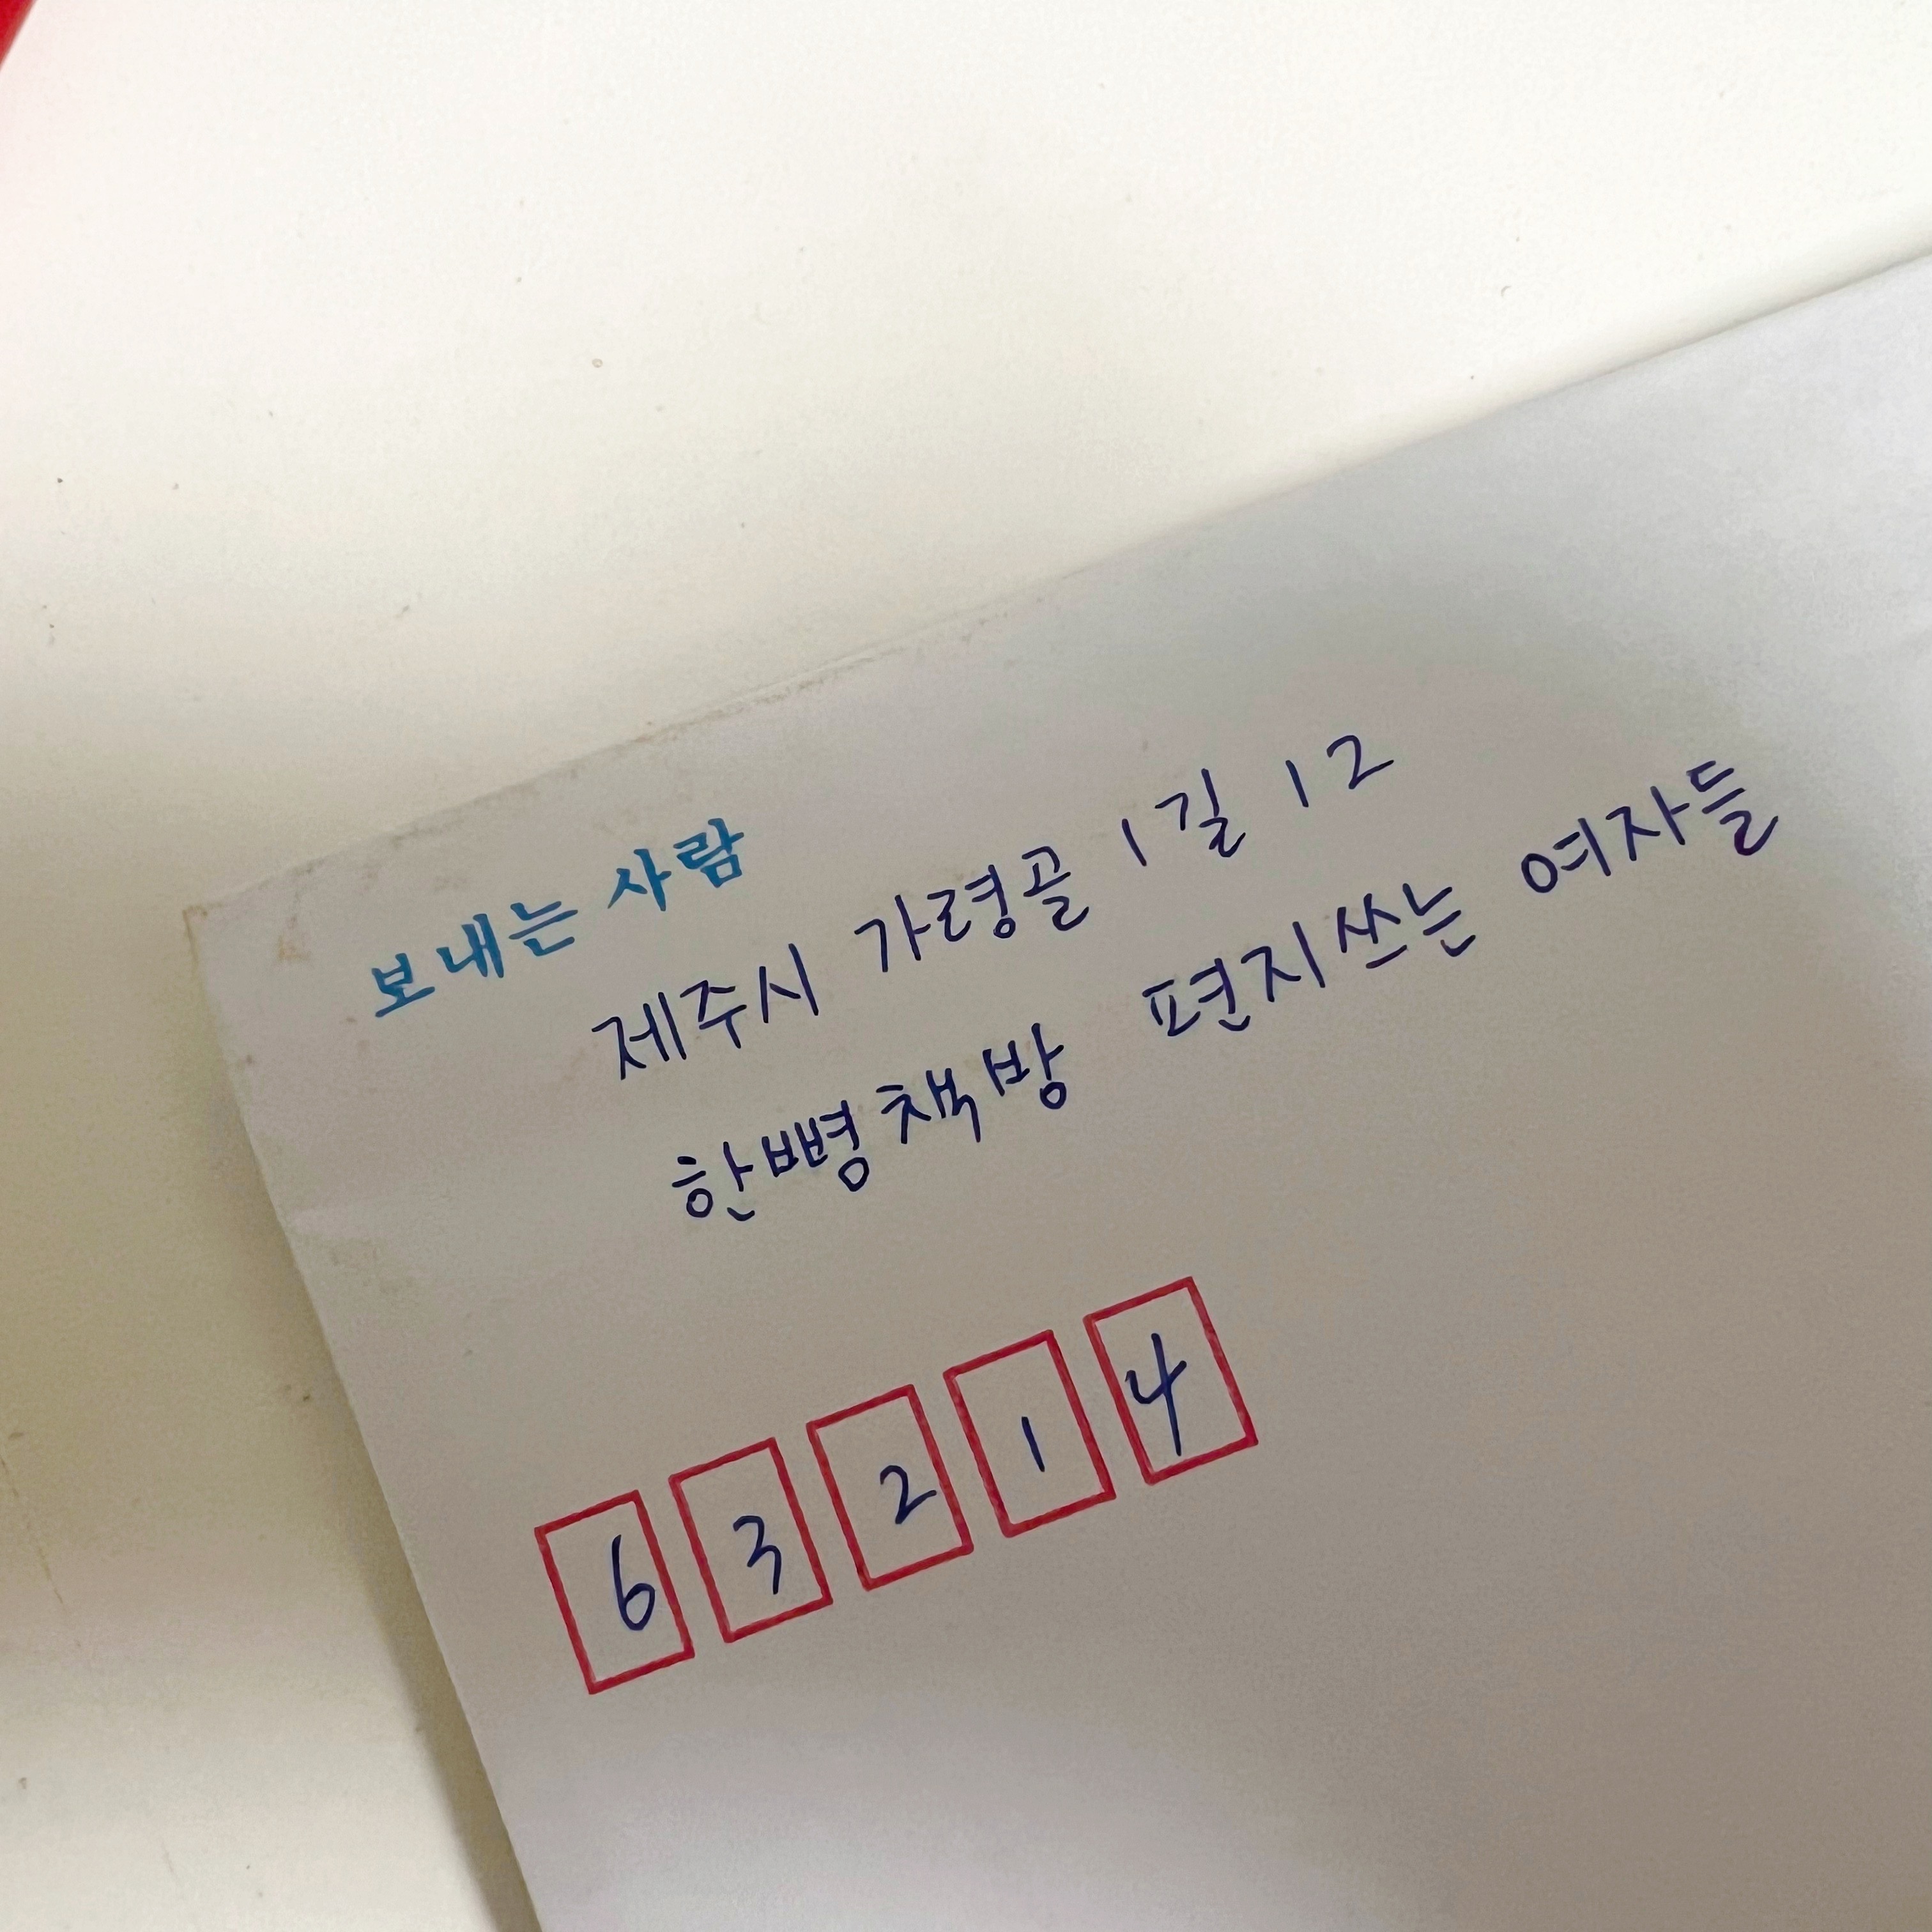 보내는 사람
제주시 가령골 1길 12
한뼝책방 편지쓰는 여자들
6 3 2 1 4